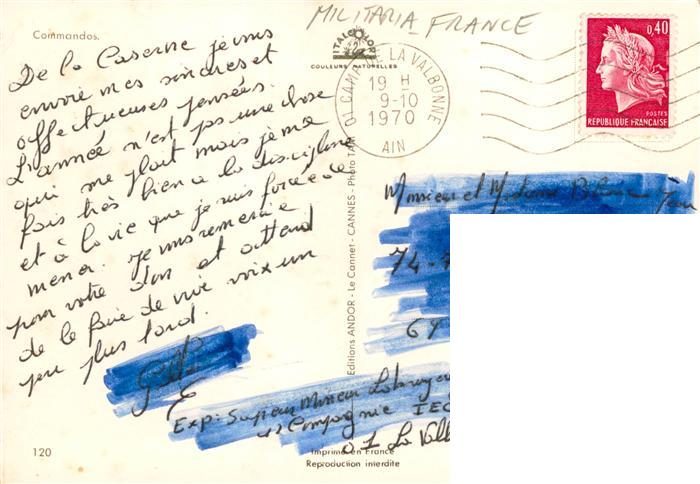 MILITARIA - FRANCE
Commandos.
De la Caserne je vous
envoie mes sincères et
affectueuses pensées.
L'année n'est pas une chose
qui me plait mais je me
fais très bien a la discipline
et à la vie que je suis forcé de
mener. je vous remercie
pour votre don et attend
de le faire de vive voix un
peu plus tard.
ITALCOLOR
COULEURS NATURELLES
01 CAMP DE LA VALBONNE
19 H
9-10
1970
AIN
0,40
POSTES
REPUBLIQUE FRANÇAISE
Monsieur et Madame Jean
74
69
Editions ANDOR - Le Cannet - CANNES - Photo
Exp: Sapeur Mineur
Compagnie
01 La Valb
120
Imprimé en France
Reproduction interdite